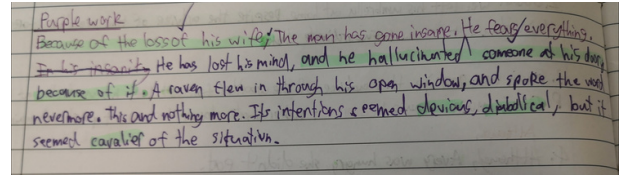 Purple work
Because of the loss of his wife, The man has gone insane. He fears everything.
In his insanity He has lost his mind, and he hallucinated someone at his door
because of it. A raven flew in through his open window, and spoke the word
nevermore. This and nothing more. Its intentions seemed devious, diabolical, but it
seemed cavalier of the situation.